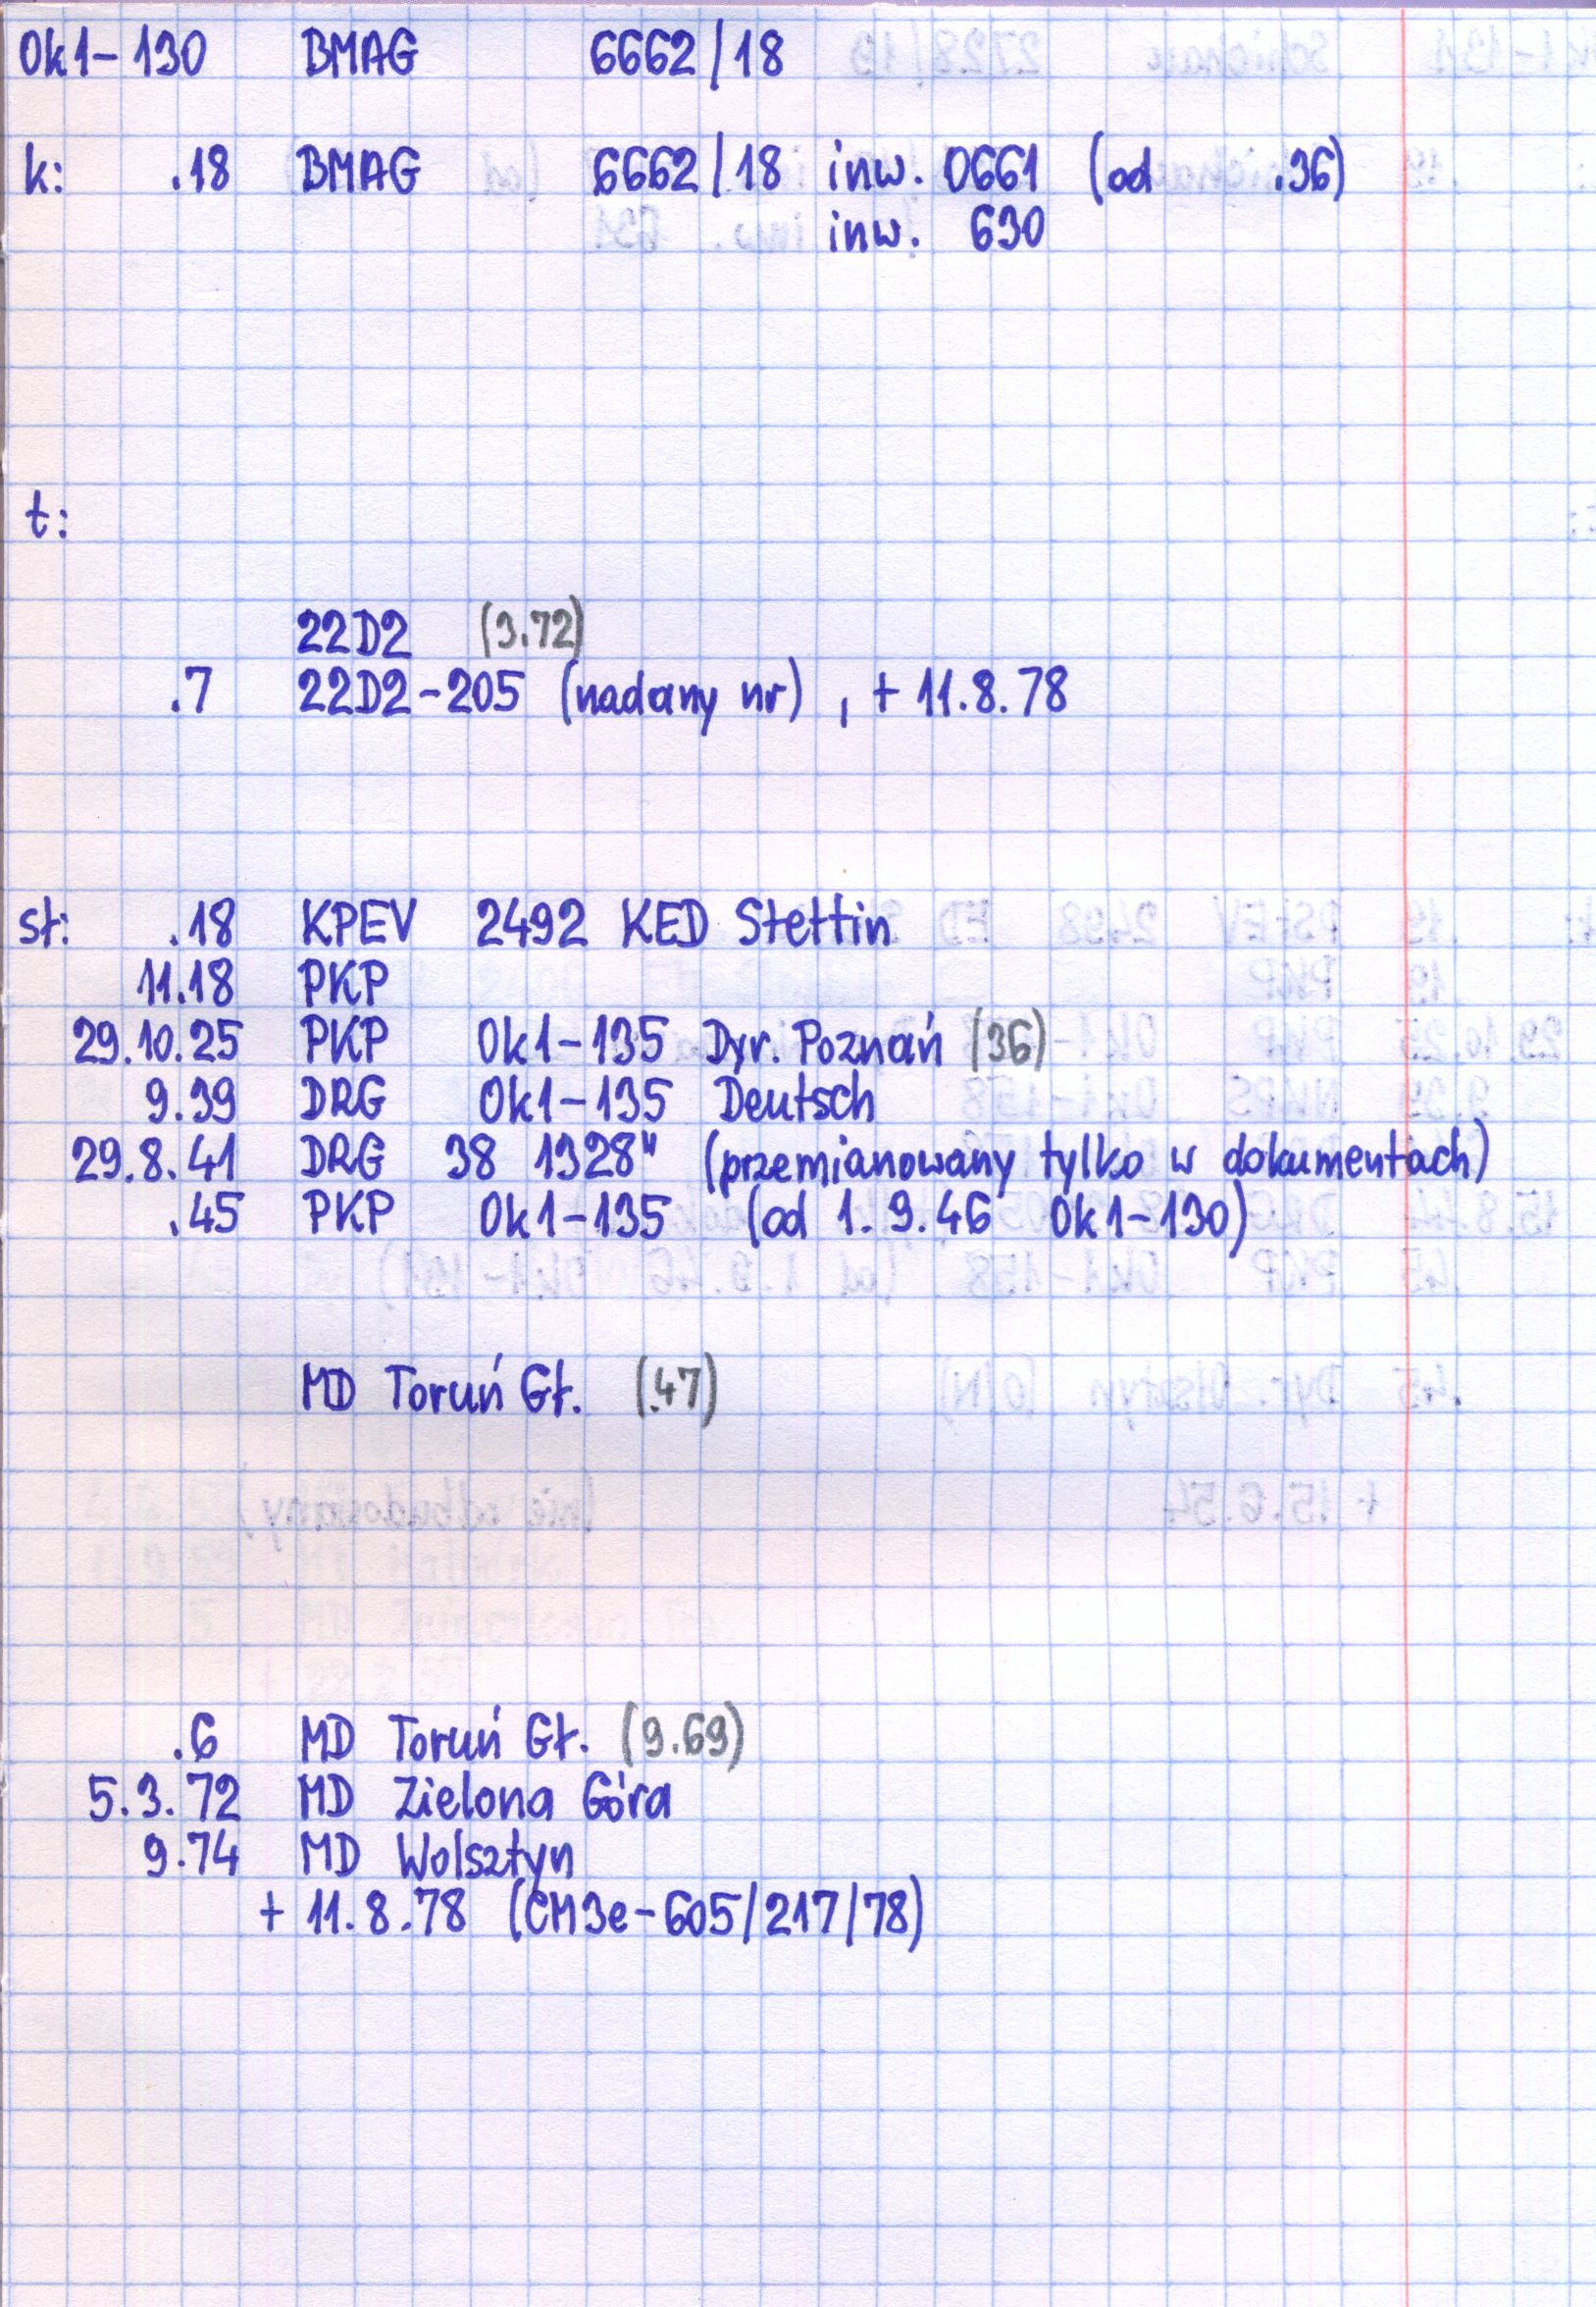 Ok1-130 BMAG 6662/18
k: .18 BMAG 6662/18 inw. 0661 (od .36)
inw. 630
t:
22D2 (3.72)
.7 22D2-205 (nadany nr) , + 11.8.78
st: .18 KPEV 2492 KED Stettin
11.18 PKP
29.10.25 PKP Ok1-135 Dyr. Poznań (36)
9.39 DRG Ok1-135 Deutsch
29.8.41 DRG 38 1328" (przemianowany tylko w dokumentach)
.45 PKP Ok1-135 (od 1.9.46 Ok1-130)
MD Toruń Gł. (.47)
.6 MD Toruń Gł. (9.69)
5.3.72 MD Zielona Góra
9.74 MD Wolsztyn
+ 11.8.78 (CM3e-605/217/78)